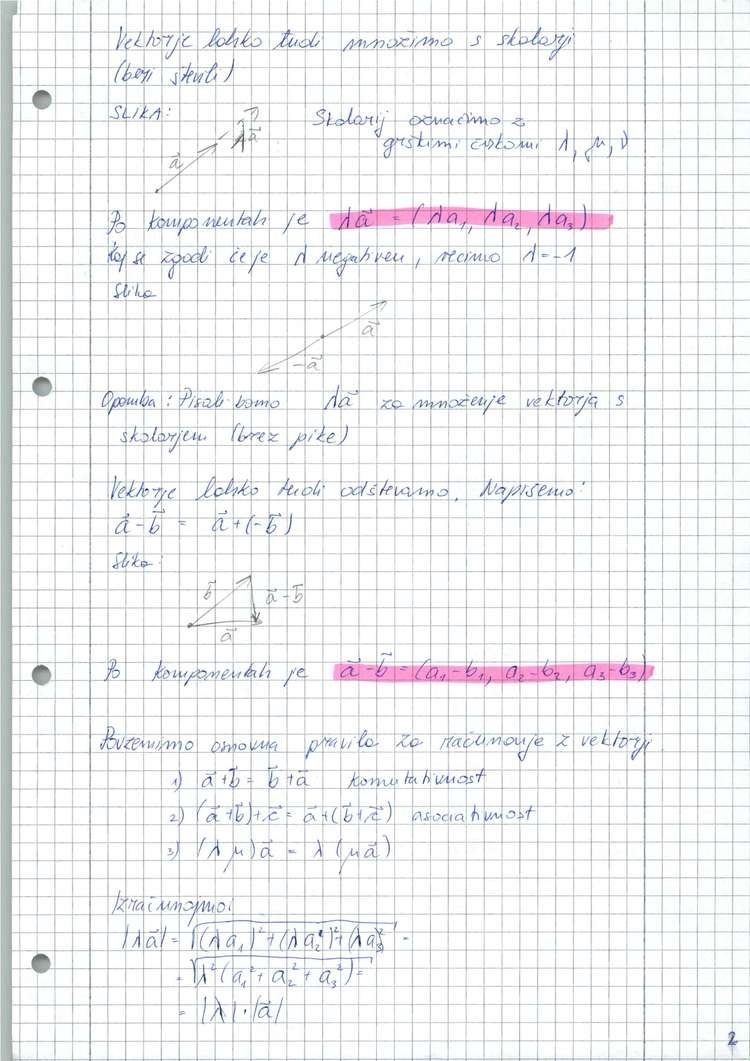 Vektorje lahko tudi množimo s skalarji
(beri števili)
SLIKA:
Skalarij označimo z
grškimi črkami λ, μ, ν
a⃗
λa⃗
Po komponentah je λa⃗ = (λa₁, λa₂, λa₃)
Kaj se zgodi če je λ negativen, recimo λ=-1
Slika
a⃗
-a⃗
Opomba: Pisali bomo λa⃗ za množenje vektorja s
skalarjem (brez pike)
Vektorje lahko tudi odštevamo. Napišemo:
a⃗ - b⃗ = a⃗ + (-b⃗)
Slika:
b⃗
a⃗ - b⃗
a⃗
Po komponentah je a⃗ - b⃗ = (a₁-b₁, a₂-b₂, a₃-b₃)
Povzemimo osnovna pravila za računanje z vektorji
1) a⃗ + b⃗ = b⃗ + a⃗ komutativnost
2) (a⃗ + b⃗) + c⃗ = a⃗ + (b⃗ + c⃗) asociativnost
3) (λ μ) a⃗ = λ (μ a⃗)
Izračunajmo:
|λa⃗| = √((λa₁)² + (λa₂)² + (λa₃)²) =
= √(λ²(a₁² + a₂² + a₃²)) =
= |λ| · |a⃗|
2